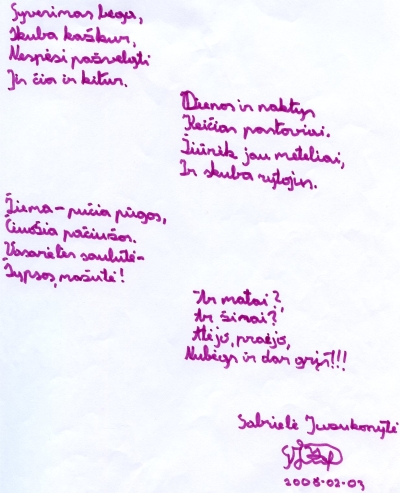 Gyvenimas bėga,
Skuba kažkur,
Nespėsi pažvelgti
Ir čia ir kitur.
Dienos ir naktys
Keičias pastoviai.
Žiūrėk jau meteliai,
Ir skuba rytojus.
Žiema - pučia pūgos,
Čiuožia pačiužos.
Vasarėlės saulutė -
Šypsos, mažutė!
Ar matai?
Ar žinai?
Atėjo, praėjo,
Nubėgs ir dar grįš!!!
Gabrielė
2008.02.03